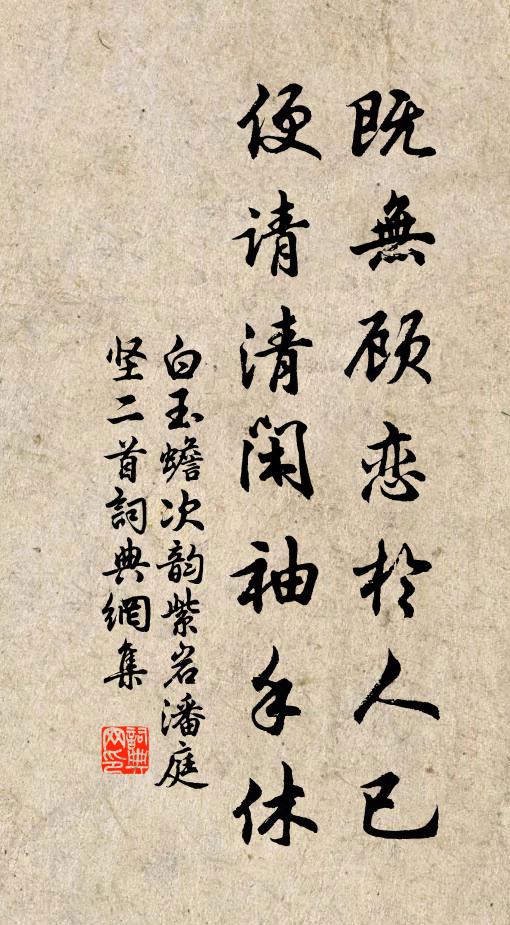 既無顾恋於人已
便请清闲袖手休
白玉蟾次韵紫岩潘庭
坚二首詞典網集
詞典
网印